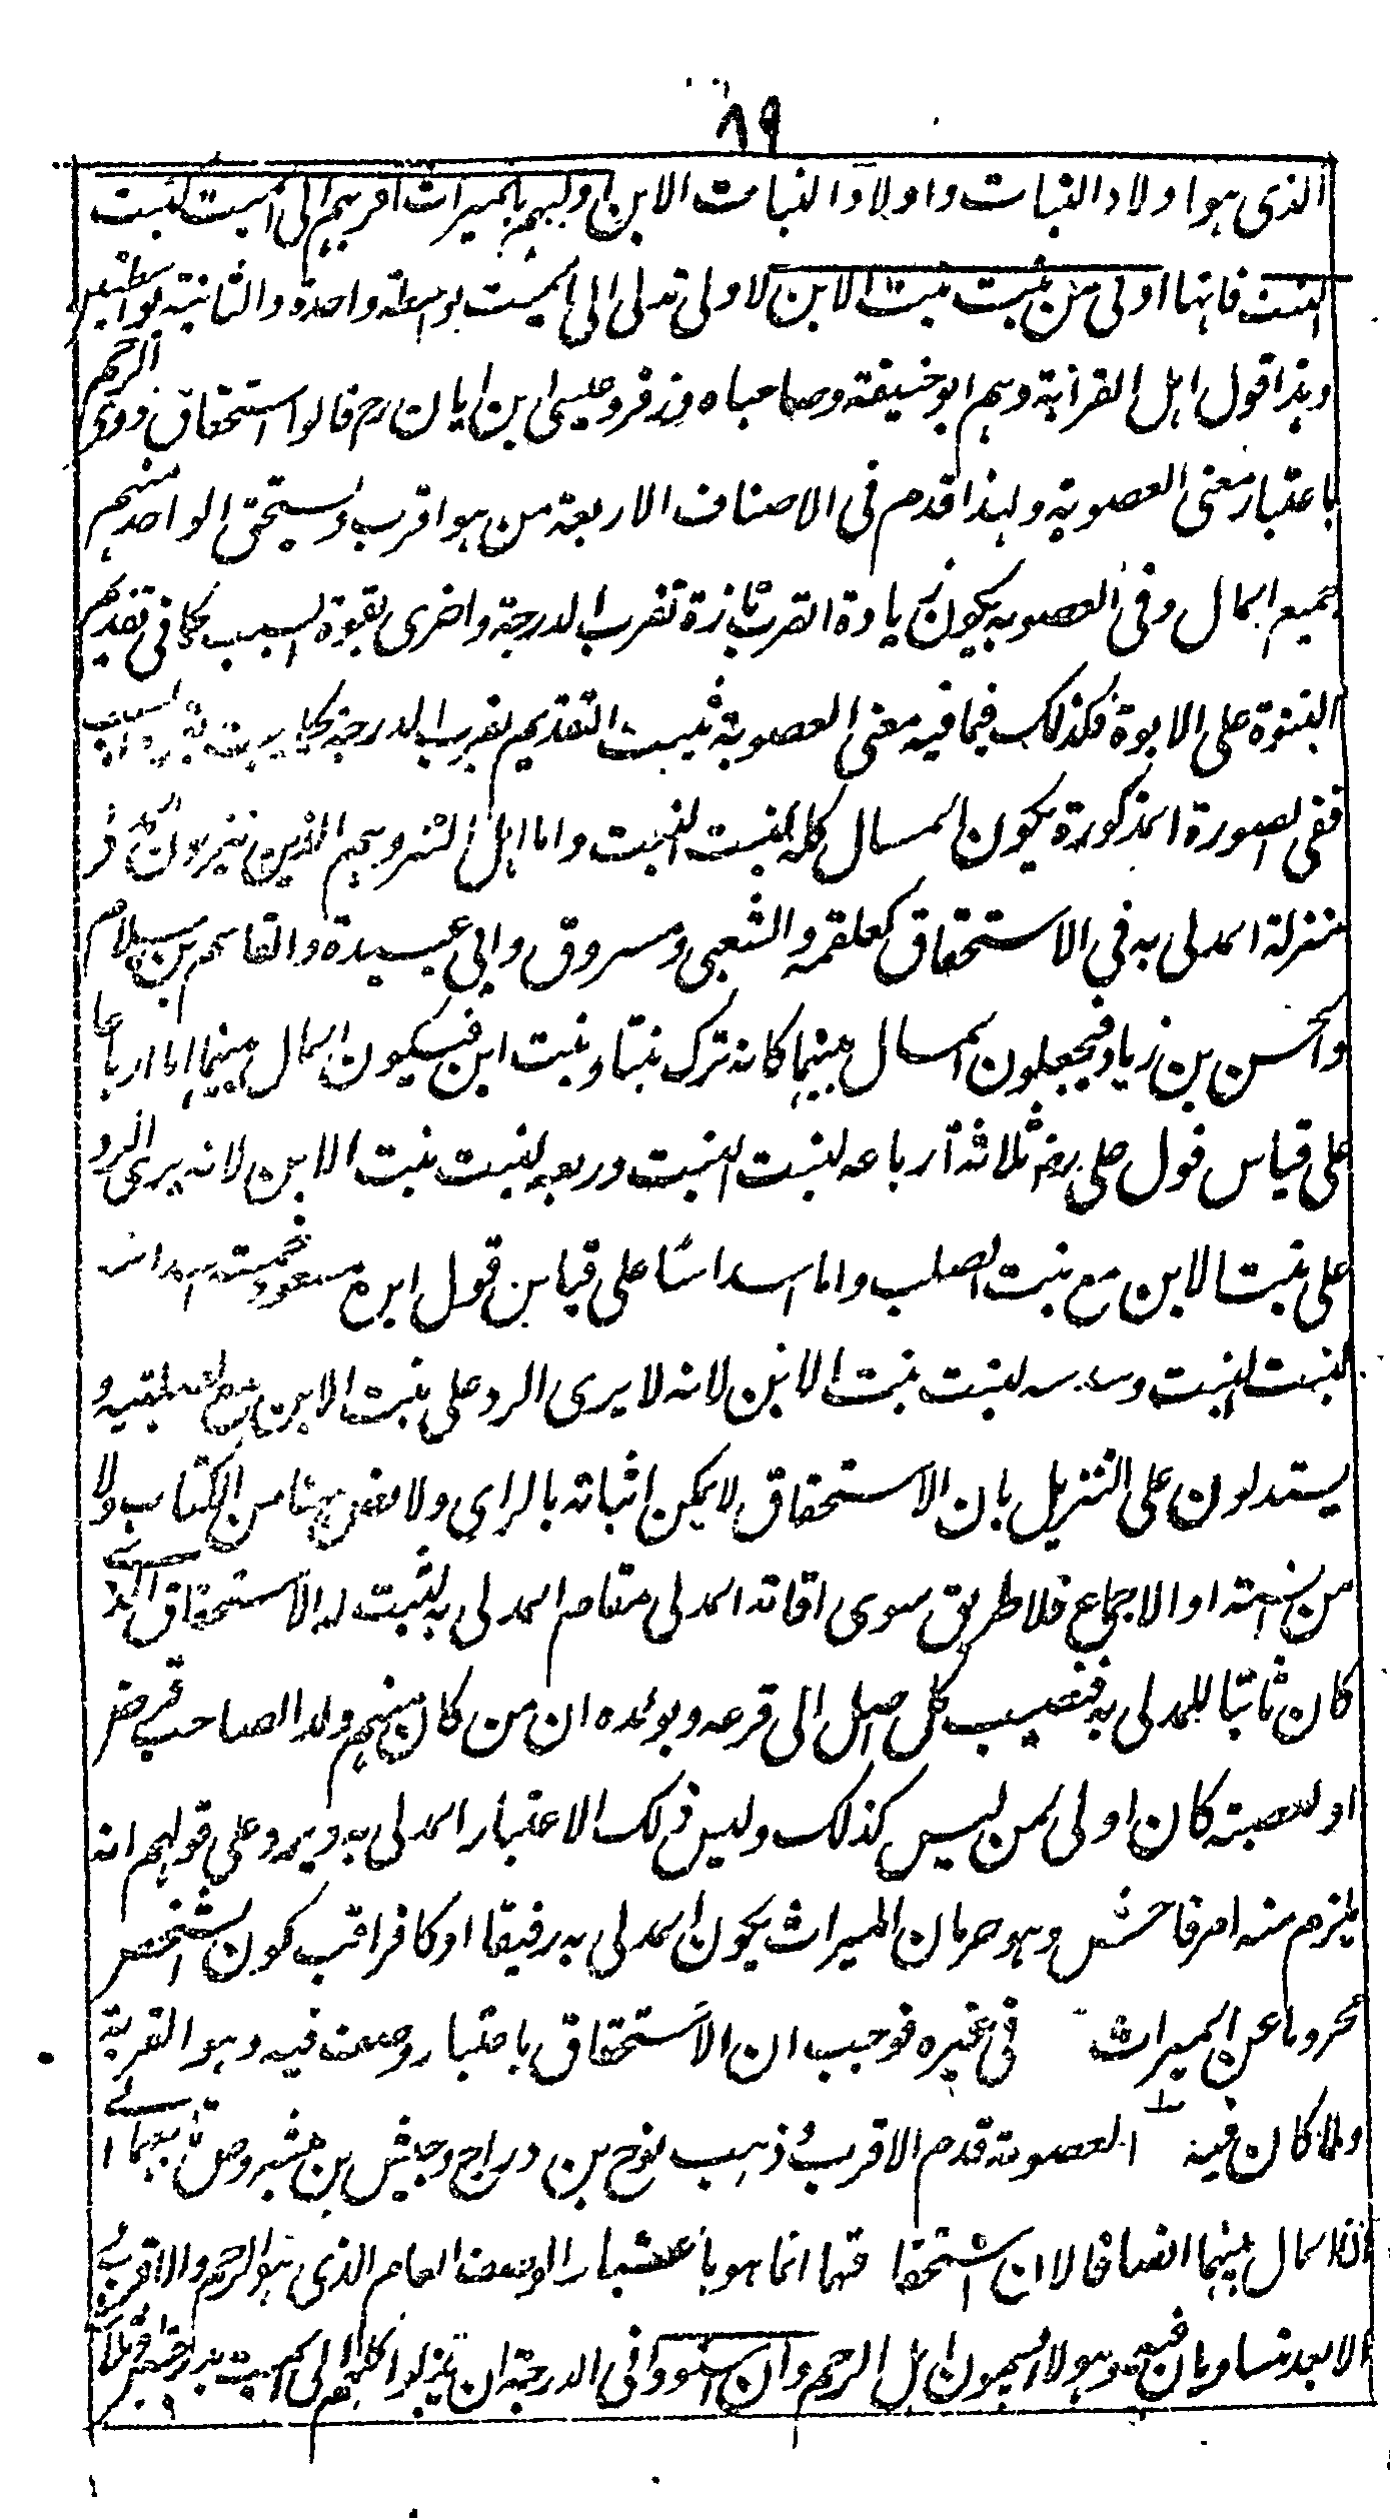 ٨٩
الذى هو اولاد البنات واولاد البنات الابن اوليهم بالميراث اقربهم الى الميت كبنت
البنت فانها اولى من بنت بنت الابن لاولى تدلى الى الميت بواسطة واحدة والثانية بواسطتين
وهذا قول اهل القرابة وهم ابو حنيفة وصاحباه وزفر وعيسى ابن ابان رح قالوا استحقاق ذوى الرحم
باعتبار معنى العصوبة ولهذا قدم فى الاصناف الاربعة من هو اقرب ويستحق الواحد منهم
جميع المال وفى العصوبه يكون زيادة القرب تارة تقرب الدرجة واخرى بقوة السبب كما فى تقديم
البنوة على الابوة فكذلك فيما فيه معنى العصوبة يثبت التقديم بقرب الدرجة كما يثبت بقوة السبب
ففى الصورة المذكورة يكون المال كله لبنت البنت واما اهل التنزيل وهم الذين ينزلون
منزلة المدلى به فى الاستحقاق كعلقمه والشعبى ومسروق وابى عبيدة والقاسم بن سلام
والحسن بن زياد فيجعلون المال بينهما كانه ترك بنتا وبنت ابن فيكون المال بينهما اما ارباعا
على قياس قول على رض ثلاثة ارباعه لبنت البنت وربعه لبنت بنت الابن لانه يرى الرد
على بنت الابن مع بنت الصلب واما اسداسا على قياس قول ابن مسعود خمسة اسداسه
لبنت البنت وسدسه لبنت بنت الابن لانه لا يرى الرد على بنت الابن مع الصلبتيه و
يستدلون على التنزيل بان الاستحقاق لا يمكن اثباته بالراى ولا نص ههنا من الكتاب ولا
من السنة او الاجماع فلا طريق سوى اقامة المدلى مقام المدلى به ليثبت له الاستحقاق الذى
كان ثابتا للمدلى به فنصيب كل اصل الى فرعه ويؤيده ان من كان منهم ولدا لصاحب فرض
او لعصبة كان اولى ممن ليس كذلك وليس ذلك الا عتبار المدلى به ويرد على قولهم انه
يلزم منه امر فاحش وهو حرمان الميراث بكون المدلى به رقيقا او كافرا قب كون الشخص
محروما عن الميراث فى غيره فوجب ان الاستحقاق باعتبار وصف فيه وهو القربة
ولما كان فيه العصوبة قدم الاقرب وذهب نوح بن دراج وحبيش بن مبشر ومن تابعهما الى
ان المال بينهما انصافا لان استحقاقهما انما هو باعتبار الوصف العام الذى هو الرحم والاقرب و
الابعد متساويان فيه وهولا يسمون اهل الرحم وان استووا فى الدرجة ان يدلوا كلهم الى الميت بدرجتين